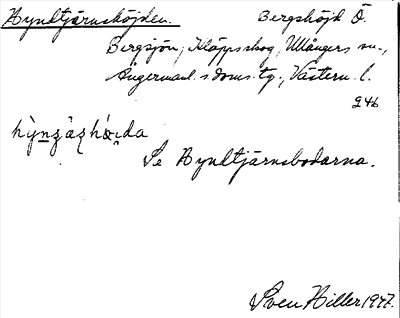 Hyndtjärnshöjden. Bergshöjd Ö.
Bergsjön, Kläppsskog, Ullångers sn.,
Ångermanl. s doms. tg., Västern. l.
246
Se Hyndtjärnsbodarna.
Sven Hiller 1947.